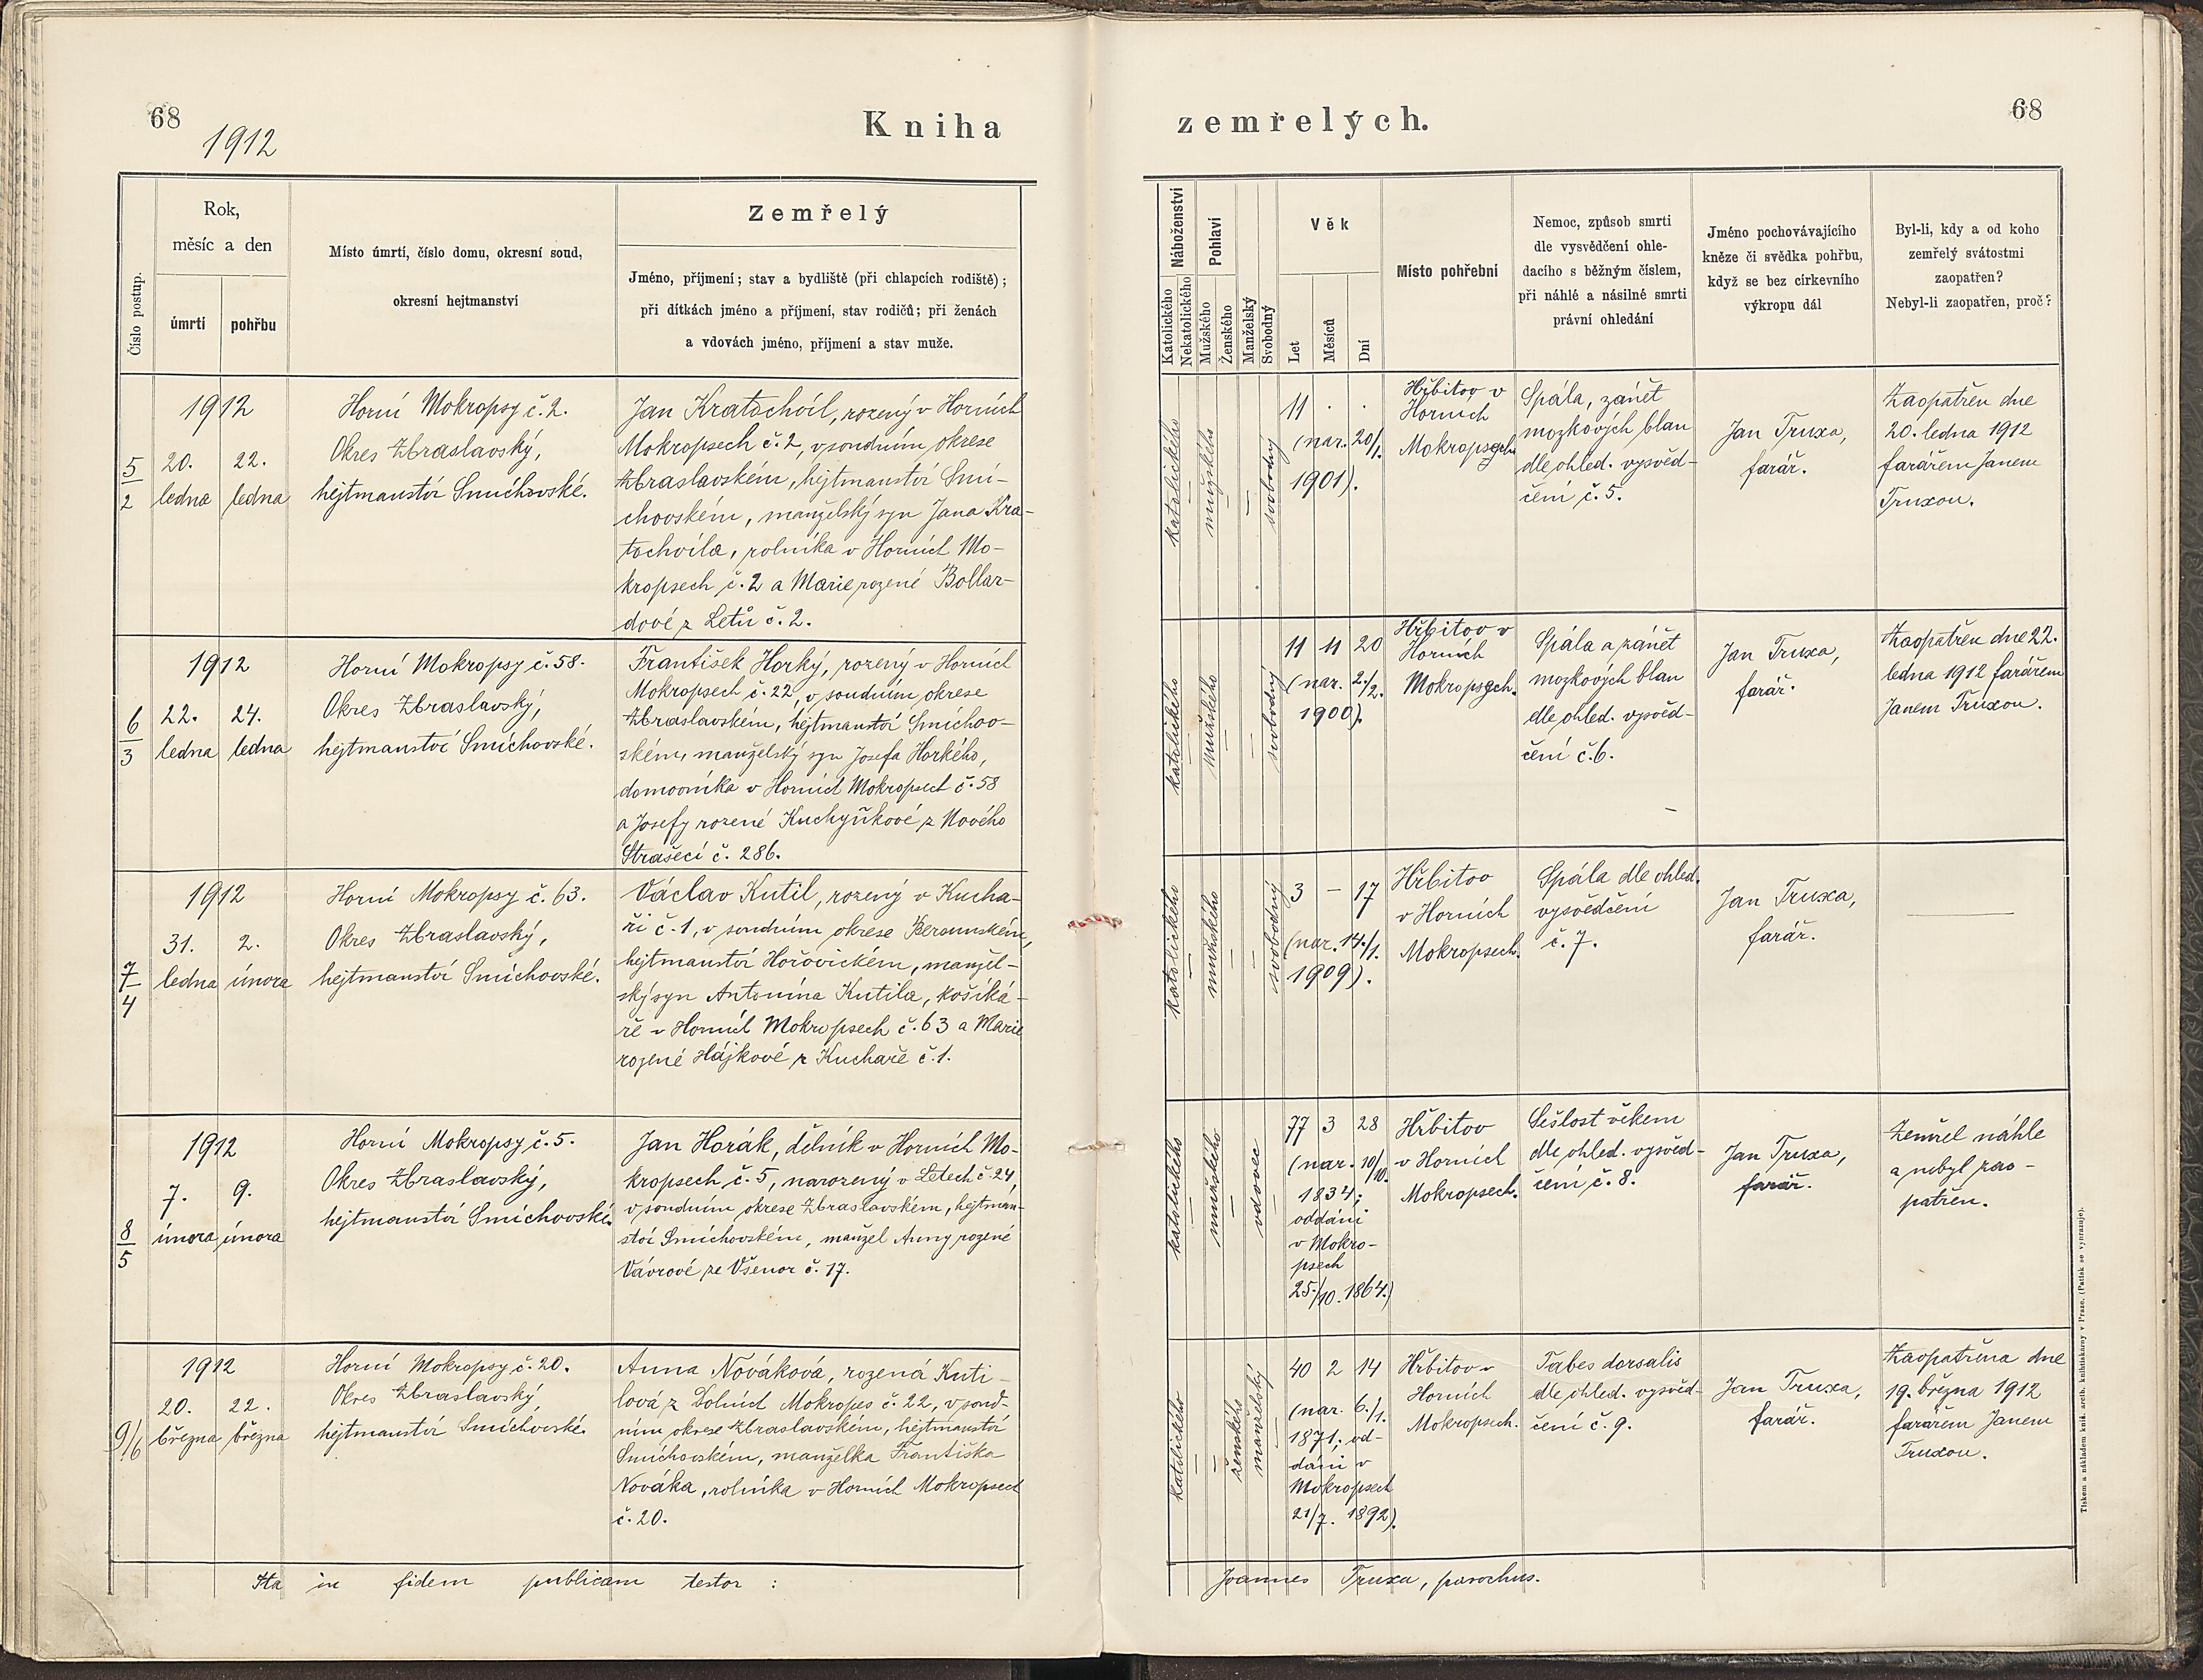 68
1912
Kniha
zemřelých.
68
Číslo postup.
Rok,
měsíc a den
úmrtí
pohřbu
Místo úmrtí, číslo domu, okresní soud,
okresní hejtmanství
Zemřelý
Jméno, příjmení; stav a bydliště (při chlapcích rodiště);
při dítkách jméno a příjmení, stav rodičů; při ženách
a vdovách jméno, příjmení a stav muže.
Náboženství
Katolického
Nekatolického
Pohlaví
Mužského
Ženského
Manželský
Svobodný
Věk
Let
Měsíců
Dní
Místo pohřební
Nemoc, způsob smrti
dle vysvědčení ohle-
dacího s běžným číslem,
při náhlé a násilné smrti
právní ohledání
Jméno pochovávajícího
kněze či svědka pohřbu,
když se bez církevního
výkropu dál
Byl-li, kdy a od koho
zemřelý svátostmi
zaopatřen?
Nebyl-li zaopatřen, proč?
5/2
1912
20. ledna
22. ledna
Horní Mokropsy č. 2.
Okres Zbraslavský,
hejtmanství Smíchovské.
Jan Kratochvíl, rozený v Horních
Mokropsech č. 2, v soudním okrese
Zbraslavském, hejtmanství Smí-
chovském, manželský syn Jana Kra-
tochvíla, rolníka v Horních Mo-
kropsech č. 2 a Marie rozené Bollar-
dové z Letů č. 2.
katolického
—
mužského
—
—
svobodný
11 . .
(nar. 20/1.
1901).
Hřbitov v
Horních
Mokropsech
Spála, zánět
mozkových blan
dle ohled. vysvěd-
čení č. 5.
Jan Truxa,
farář.
Zaopatřen dne
20. ledna 1912
farářem Janem
Truxou.
6/3
1912
22. ledna
24. ledna
Horní Mokropsy č. 58.
Okres Zbraslavský,
hejtmanství Smíchovské.
František Horký, rozený v Horních
Mokropsech č. 22, v soudním okrese
Zbraslavském, hejtmanství Smíchov-
ském, manželský syn Josefa Horkého,
domovníka v Horních Mokropsech č. 58
a Josefy rozené Kuchyňkové z Nového
Strašecí č. 286.
katolického
—
mužského
—
—
svobodný
11 11 20
(nar. 2./2.
1900).
Hřbitov v
Horních
Mokropsech.
Spála a zánět
mozkových blan
dle ohled. vysvěd-
čení č. 6.
Jan Truxa,
farář.
Zaopatřen dne 22.
ledna 1912 farářem
Janem Truxou.
7/4
1912
31. ledna
2. února
Horní Mokropsy č. 63.
Okres Zbraslavský,
hejtmanství Smíchovské.
Václav Kutil, rozený v Kucha-
ři č. 1, v soudním okrese Berounském,
hejtmanství Hořovickém, manžel-
ský syn Antonína Kutila, košíká-
ře v Horních Mokropsech č. 63 a Marie
rozené Hájkové z Kuchaře č. 1.
katolického
—
mužského
—
—
svobodný
3 – 17
(nar. 14./1.
1909).
Hřbitov
v Horních
Mokropsech.
Spála dle ohled.
vysvědčení
č. 7.
Jan Truxa,
farář.
—
8/5
1912
7. února
9. února
Horní Mokropsy č. 5.
Okres Zbraslavský,
hejtmanství Smíchovské.
Jan Horák, dělník v Horních Mo-
kropsech č. 5, narozený v Letech č. 24,
v soudním okrese Zbraslavském, hejtman-
ství Smíchovském, manžel Anny rozené
Vávrové ze Všenor č. 17.
katolického
—
mužského
—
vdovec
—
77 3 28
(nar. 10/10.
1834;
oddáni
v Mokro-
psech
25./10. 1864.)
Hřbitov
v Horních
Mokropsech.
Sešlost věkem
dle ohled. vysvěd-
čení č. 8.
Jan Truxa,
farář.
Zemřel náhle
a nebyl zao-
patřen.
9/6
1912
20. března
22. března
Horní Mokropsy č. 20.
Okres Zbraslavský,
hejtmanství Smíchovské.
Anna Nováková, rozená Kuti-
lová z Dolních Mokropes č. 22, v soud-
ním okrese Zbraslavském, hejtmanství
Smíchovském, manželka Františka
Nováka, rolníka v Horních Mokropsech
č. 20.
katolického
—
—
ženského
manželský
—
40 2 14
(nar. 6./1.
1871; od-
dáni v
Mokropsech
21/7. 1892).
Hřbitov v
Horních
Mokropsech.
Tabes dorsalis
dle ohled. vysvěd-
čení č. 9.
Jan Truxa,
farář.
Zaopatřena dne
19. března 1912
farářem Janem
Truxou.
Ita in fidem publicam testor :
Joannes Truxa, parochus.
Tiskem a nákladem kníž. arcib. knihtiskárny v Praze. (Patisk se vyhrazuje).